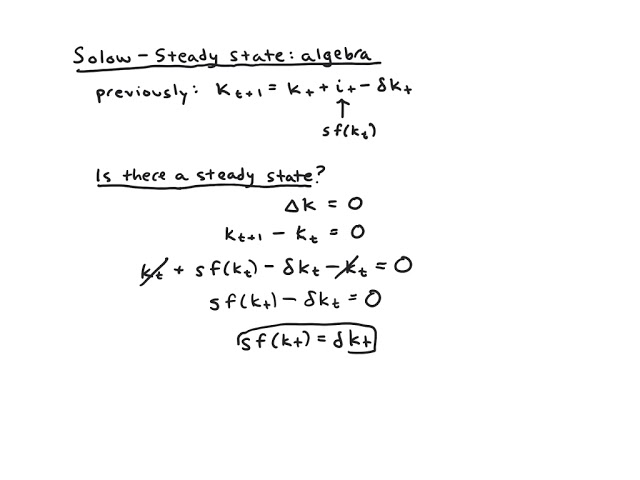 Solow - Steady state: algebra
previously: k_{t+1} = k_t + i_t - δk_t
↑
sf(k_t)
Is there a steady state?
Δk = 0
k_{t+1} - k_t = 0
k_t + sf(k_t) - δk_t - k_t = 0
sf(k_t) - δk_t = 0
sf(k_t) = δk_t